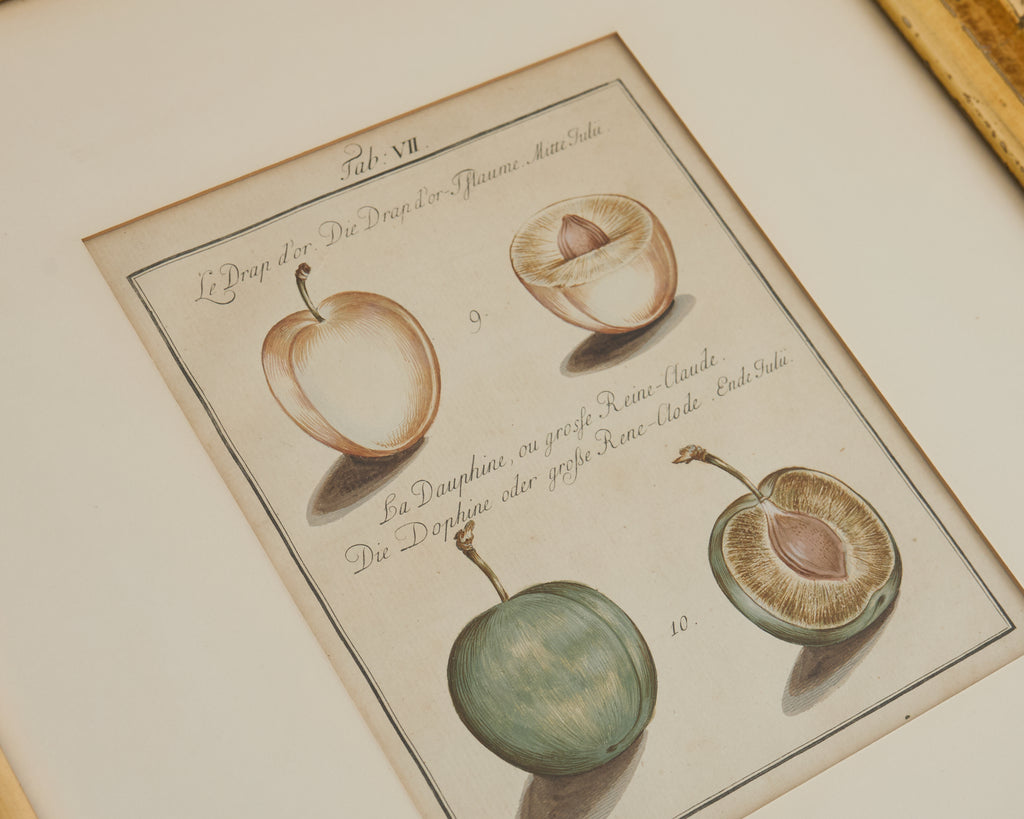 Tab: VII.
Le Drap d'or. Die Drap d'or-Pflaume. Mitte Julii.
9.
La Dauphine, ou grosse Reine-Claude.
Die Dophine oder große Rene-Clode. Ende Julii.
10.